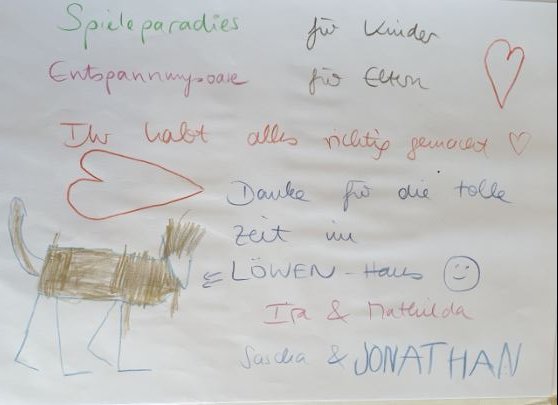 Spieleparadies für Kinder
Entspannungsoase für Eltern
Ihr habt alles richtig gemacht ♡
Danke für die tolle
Zeit im
⇐ LÖWEN-Haus ☺
& Mathilda
Sascha & JONATHAN